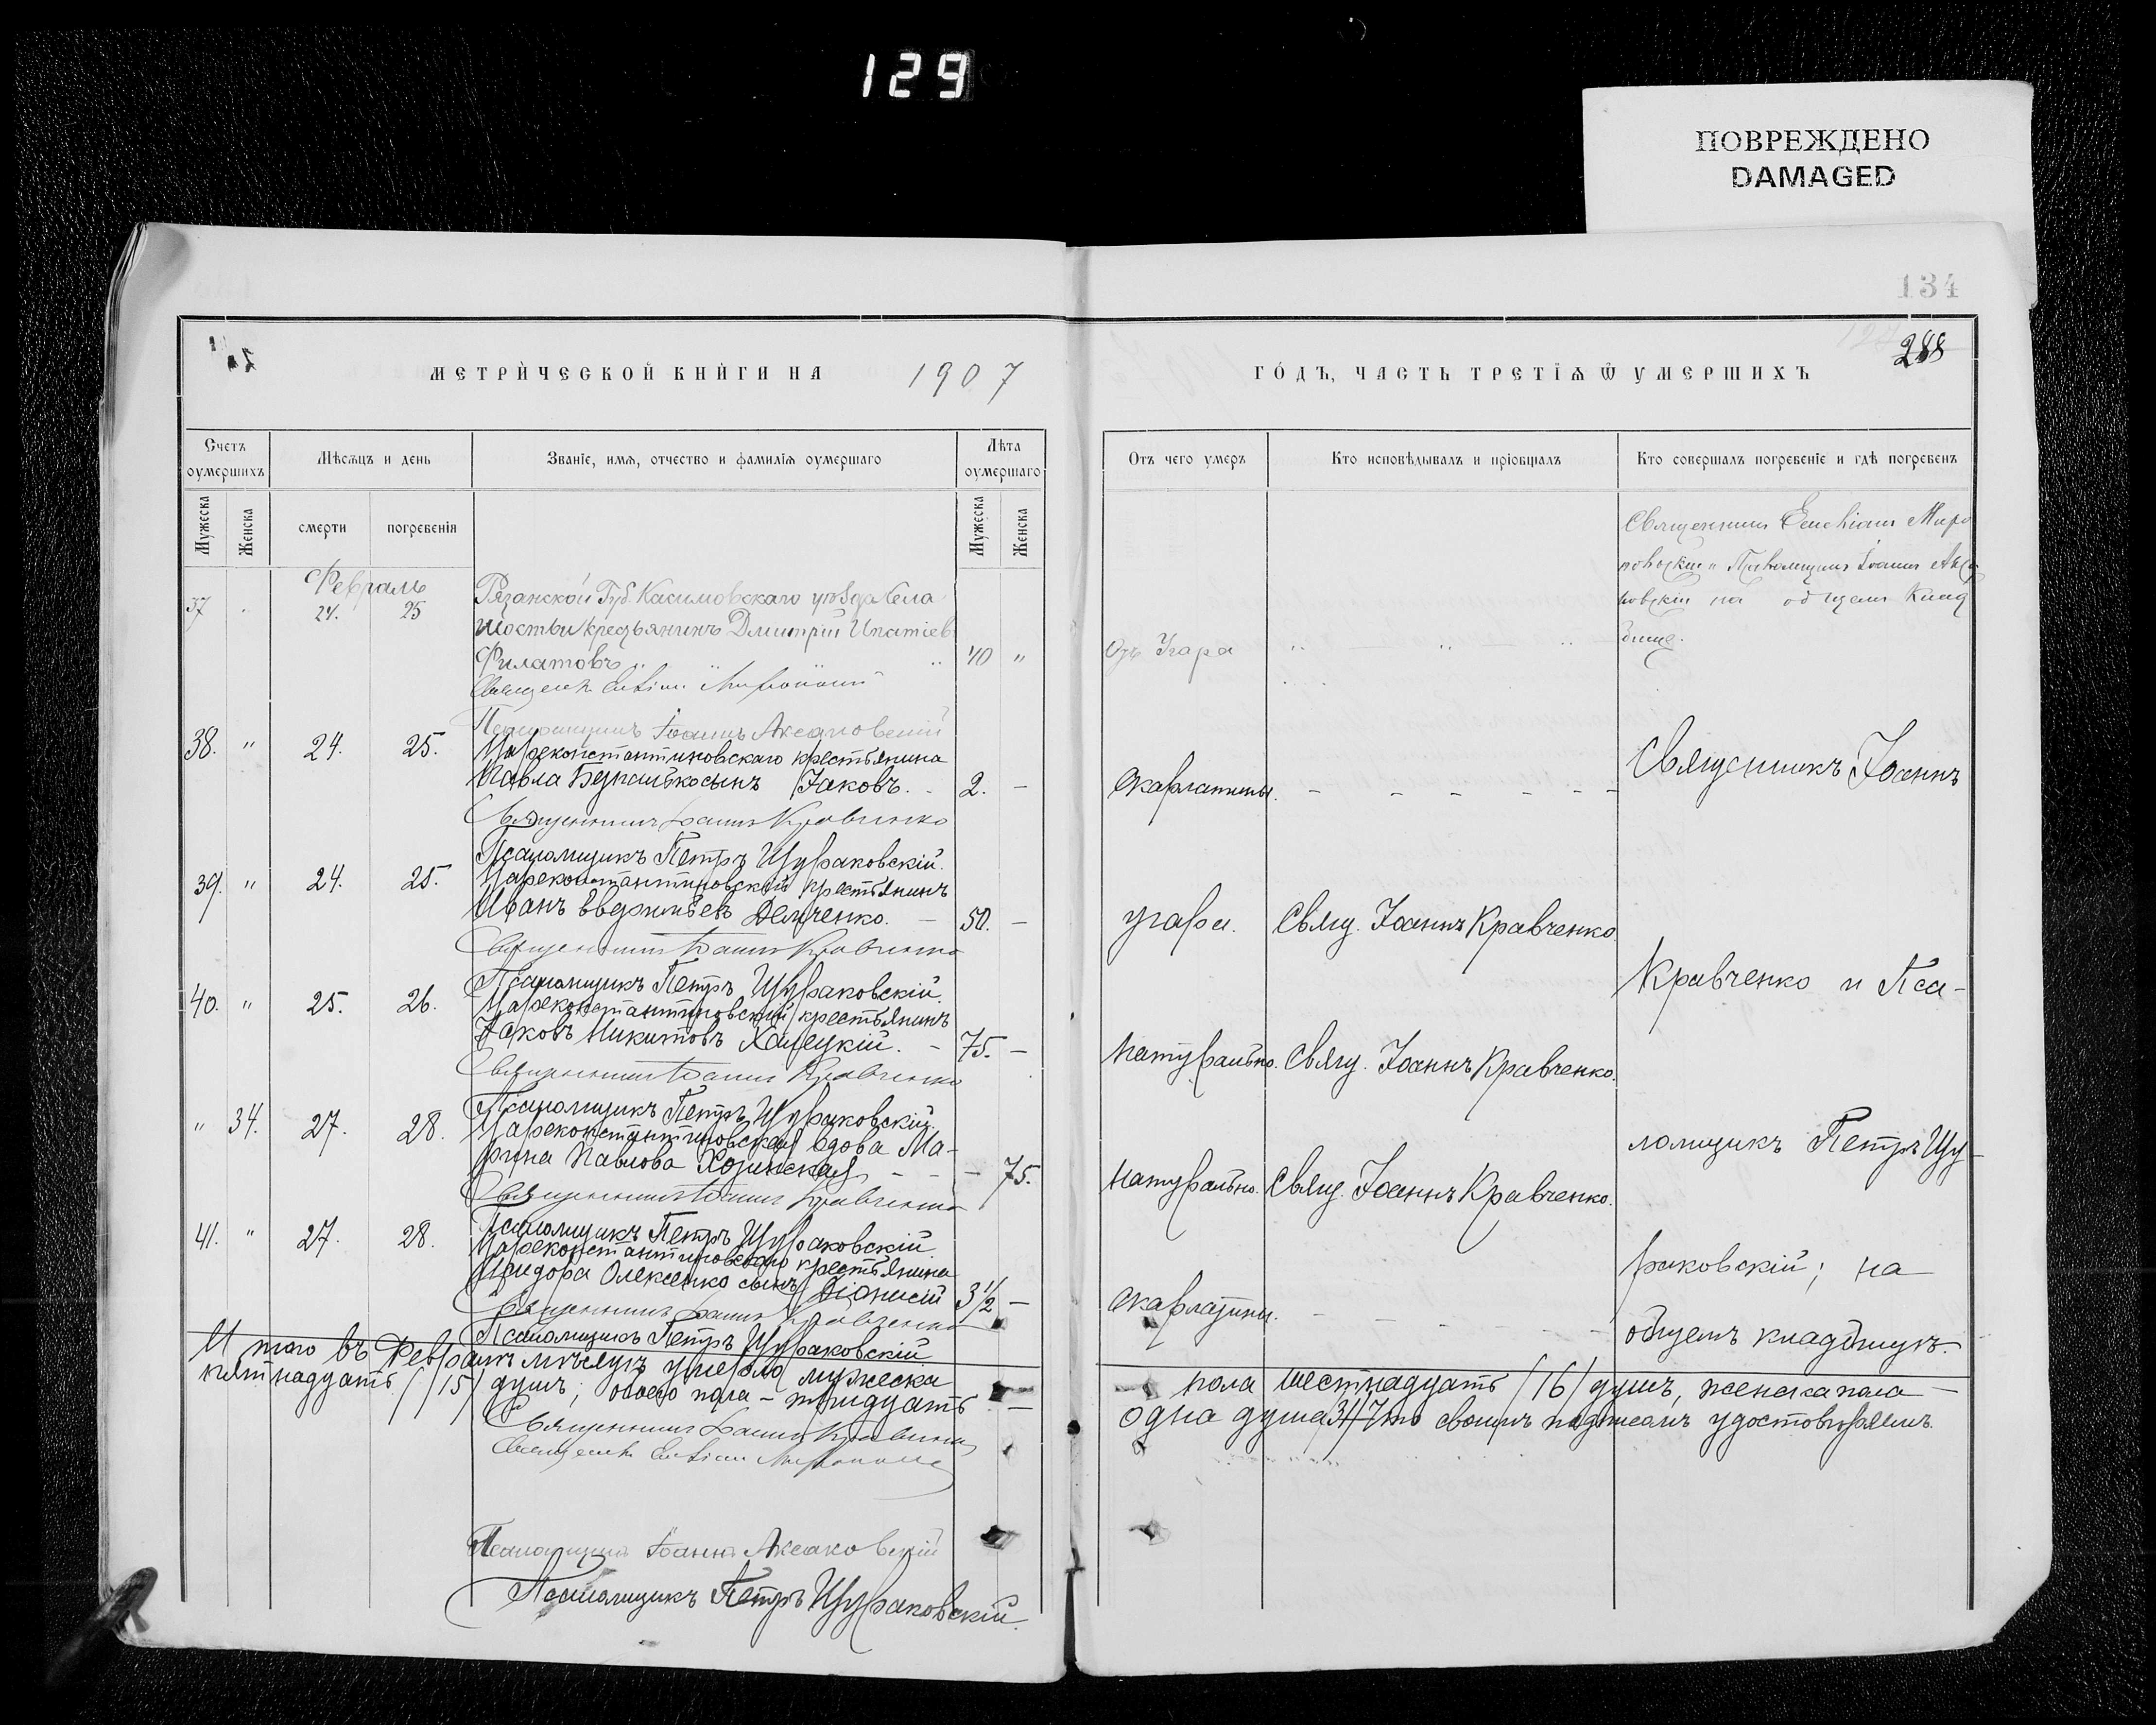 129
ПОВРЕЖДЕНО
DAMAGED
134
288
МЕТРИЧЕСКОЙ КНИГИ НА 1907
ГОДЪ, ЧАСТЬ ТРЕТІЯ Ѿ УМЕРШИХЪ
Счетъ оумершихъ
Мѣсяцъ и день
Званіе, имя, отчество и фамилія оумершаго
Лѣта оумершаго
Отъ чего умеръ
Кто исповѣдывалъ и пріобщалъ
Кто совершалъ погребеніе и гдѣ погребенъ
Мужеска
Женска
смерти
погребенія
Мужеска
Женска
Февраль
37 24. 25 Рязанской Губ. Касимовскаго уѣзда Села
крестьянинъ Дмитрій Ипатіев
Филатовъ 40 "
Отъ Угара
Священникъ
Іоаннъ
на общем клад
бище.
Псаломщикъ Іоаннъ Аксаковскій
38. " 24. 25. Цареконстантиновскаго крестьянина
Павла сынъ Іаковъ. - 2. -
скарлатины. - - - - - -
Священникъ Іоаннъ
Священникъ Іоаннъ Кравченко
Псаломщикъ Петръ Щураковскій.
39. " 24. 25. Цареконстантиновскій крестьянинъ
Иванъ Демченко. - 50. -
угара. Свящ. Іоаннъ Кравченко.
Священникъ Іоаннъ Кравченко
Кравченко и Пса-
Псаломщикъ Петръ Щураковскій.
40. " 25. 26. Цареконстантиновскій крестьянинъ
Іаковъ Никитовъ Халецкій. - 75. -
натурально. Свящ. Іоаннъ Кравченко.
Священникъ Іоаннъ Кравченко
Псаломщикъ Петръ Щураковскій.
" 34. 27. 28. Цареконстантиновская вдова Ма-
рина Павлова - - - 75.
натурально. Свящ. Іоаннъ Кравченко.
ломщикъ Петръ Щу-
Священникъ Іоаннъ Кравченко
Псаломщикъ Петръ Щураковскій.
41. " 27. 28. Цареконстантиновскаго крестьянина
Исидора Олексенко сынъ Діонисій 3 1/2 -
скарлатины. - - - - - -
раковскій; на
общемъ кладбищѣ.
Священникъ Іоаннъ Кравченко
Псаломщикъ Петръ Щураковскій.
И того въ Февралѣ мѣсяцѣ умерло мужеска
пола шестнадцать /16/ душъ, женска пола -
пятнадцать /15/ душъ; обоего пола - тридцать
одна душа /31/ что своимъ подписомъ удостовѣряемъ.
Священникъ Іоаннъ Кравченко
Псаломщикъ Іоаннъ Аксаковскій
Псаломщикъ Петръ Щураковскій.